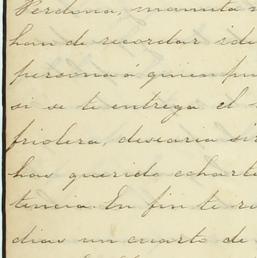 Perdona, mamita
han de recordar
persona á quien
si se te entrega el
friolera, desearia
has querido
tencia. En fin te
dias un cuarto de